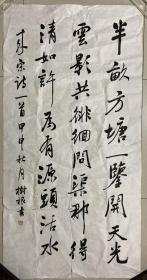 半畝方塘一鑒開天光
雲影共徘徊問渠那得
清如許為有源頭活水
来宋詩一首甲申秋月樹根書